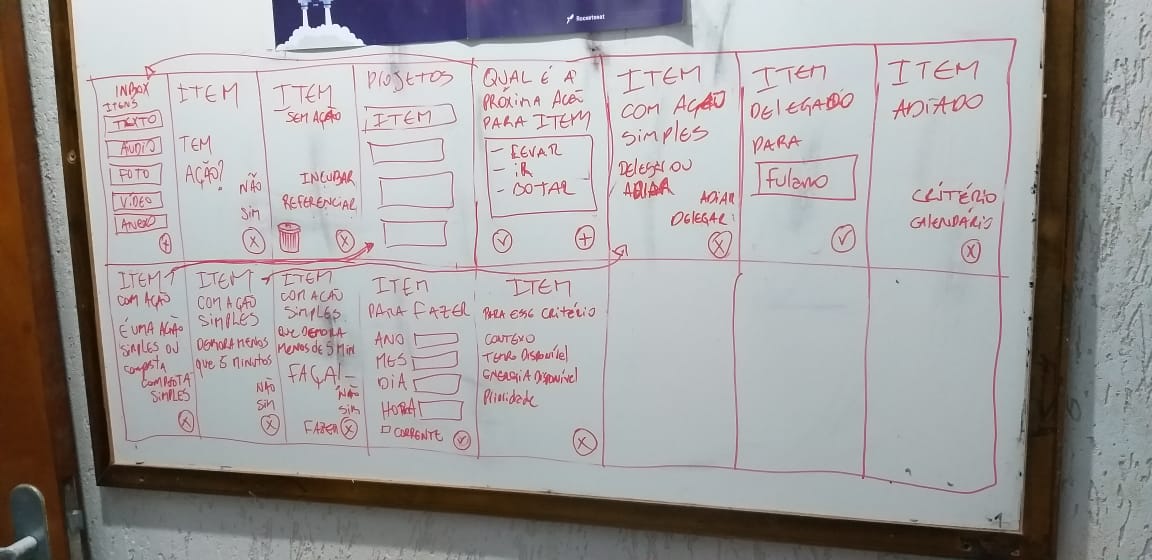 Rocketseat
INBOX
ITENS
TEXTO
ÁUDIO
FOTO
VÍDEO
ANEXO
+
ITEM
TEM
AÇÃO?
NÃO
SIM
X
ITEM
SEM AÇÃO
INCUBAR
REFERENCIAR
X
PROJETOS
ITEM
QUAL É A
PRÓXIMA AÇÃO
PARA ITEM
- LEVAR
- IR
- BOTAR
+
ITEM
COM AÇÃO
SIMPLES
DELEGAR OU
ADIAR
ADIAR
DELEGAR
X
ITEM
DELEGADO
PARA
Fulano
ITEM
ADIADO
CRITÉRIO
CALENDÁRIO
X
ITEM
COM AÇÃO
É UMA AÇÃO
SIMPLES OU
composta
COMPOSTA
SIMPLES
X
ITEM
COM AÇÃO
SIMPLES
DEMORA MENOS
QUE 5 MINUTOS
NÃO
SIM
X
ITEM
COM AÇÃO
SIMPLES
QUE DEMORA
MENOS DE 5 MIN
FAÇA!
NÃO
SIM
FAZER X
ITEM
PARA FAZER
ANO
MES
DIA
HORA
CORRENTE
ITEM
PARA ESSE CRITÉRIO
TEMPO DISPONÍVEL
ENERGIA DISPONÍVEL
PRIORIDADE
X